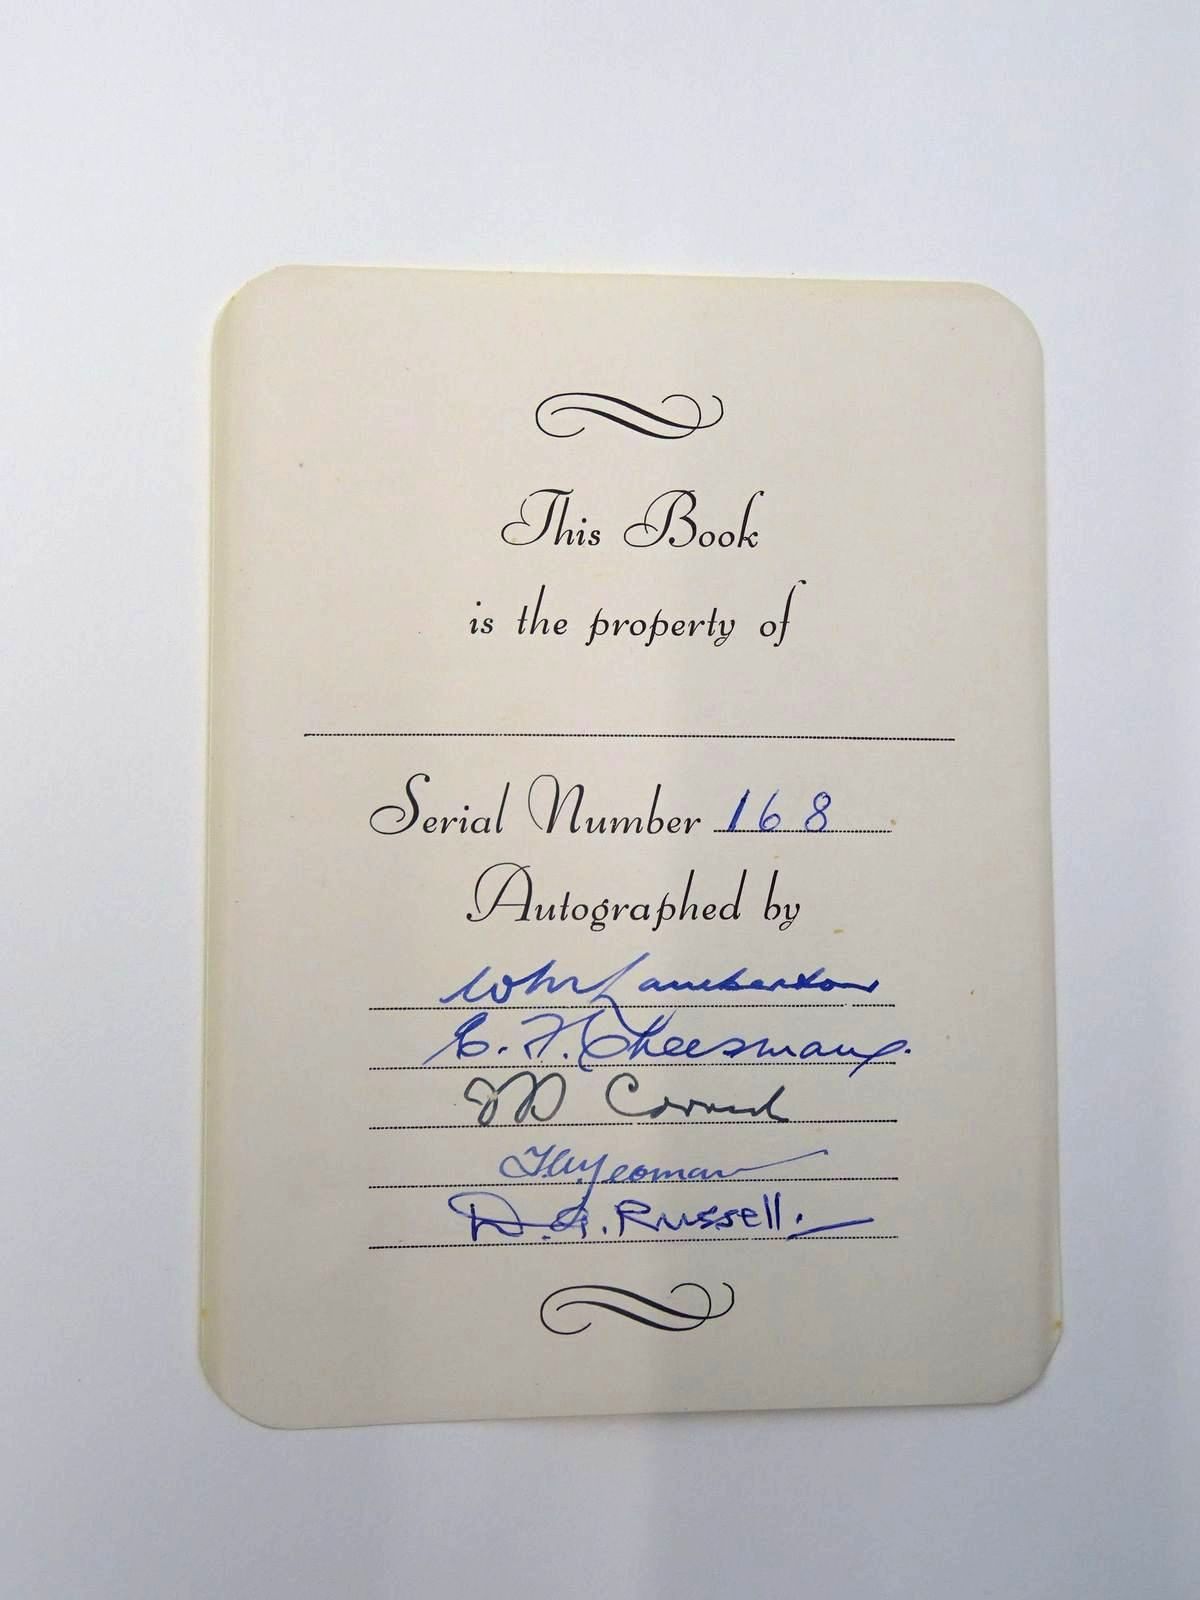 This Book
is the property of
Serial Number 168
Autographed by
Wm Lamberton
E. F. Cheesman.
JD
T.W. Yeoman
D.G. Russell.